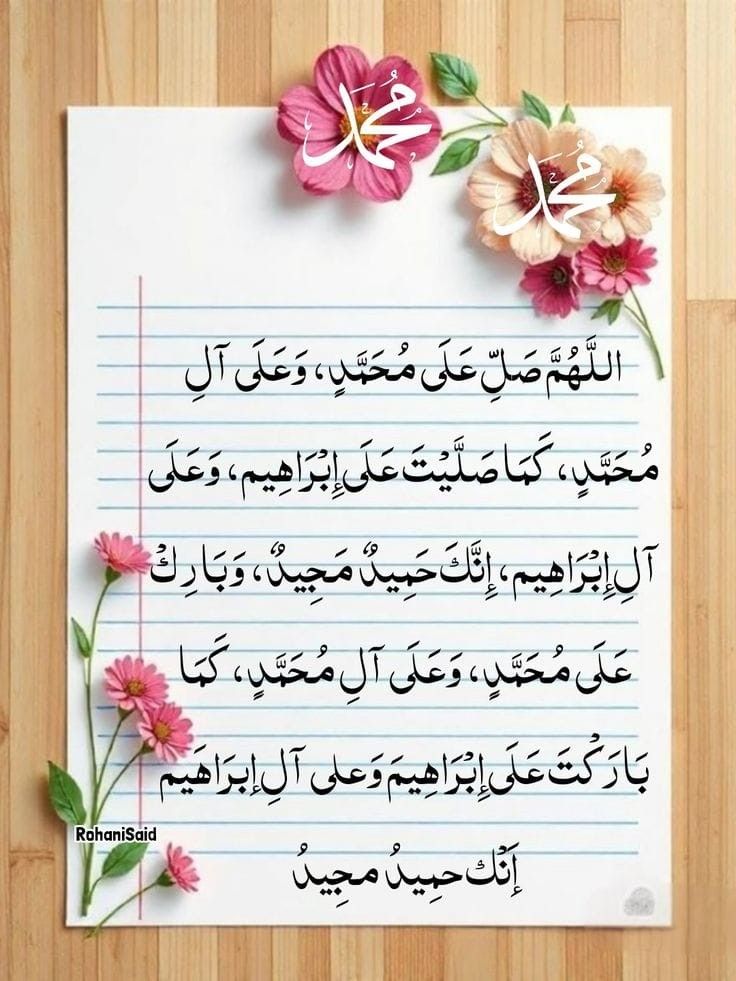 محمد
محمد
اللَّهُمَّ صَلِّ عَلَى مُحَمَّدٍ، وَعَلَى آلِ
مُحَمَّدٍ، كَمَا صَلَّيْتَ عَلَى إِبْرَاهِيم، وَعَلَى
آلِ إِبْرَاهِيم، إِنَّكَ حَمِيدٌ مَجِيدٌ، وَبَارِكْ
عَلَى مُحَمَّدٍ، وَعَلَى آلِ مُحَمَّدٍ، كَمَا
بَارَكْتَ عَلَى إِبْرَاهِيمَ وَعلى آلِ إبرَاهَيم
إَنْك حمِيدُ مجِيدُ
RohaniSaid